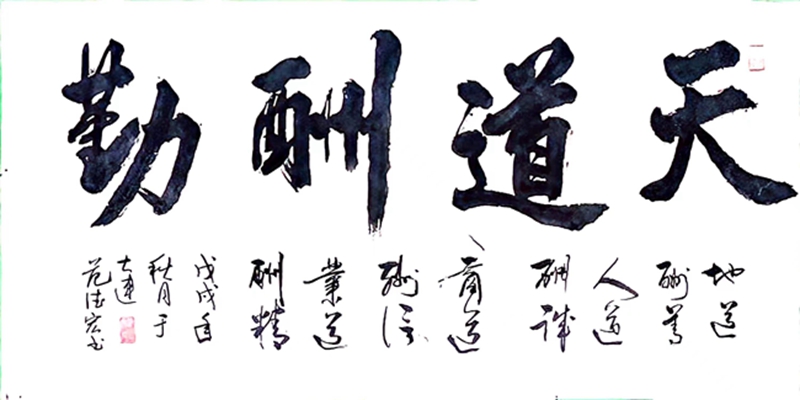 天道酬勤
地道
酬善
人道
酬诚
商道
酬信
業道
酬精
戊戌年
秋月于
大连
范德宏书